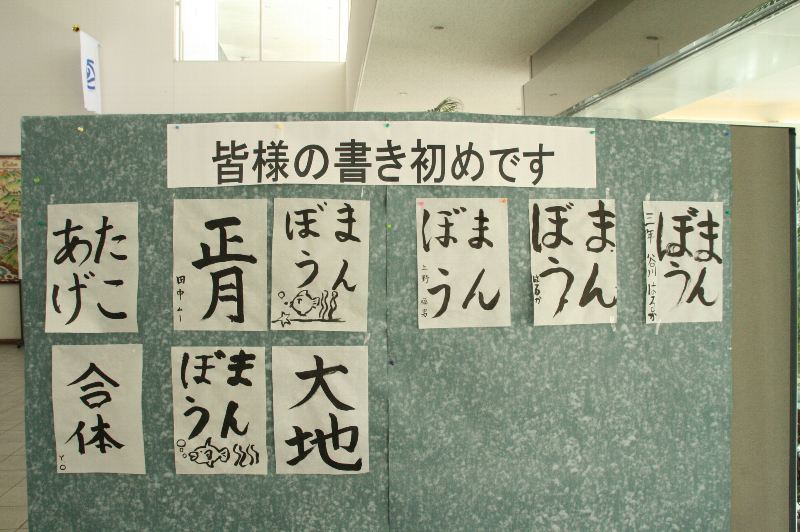 皆様の書き初めです
たこ
あげ
正月
田中
まん
ぼう
まん
ぼう
上野
まん
ぼう
はるか
まん
ぼう
三年 谷川 はるか
合体
Y.O
まん
ぼう
大地